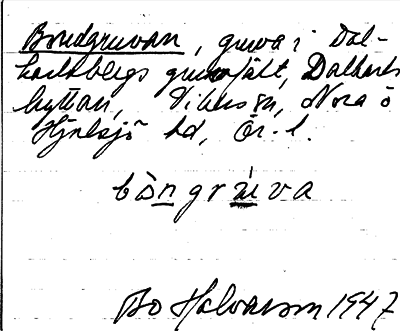 Bondgruvan, gruva i Dal-
karlsbergs gruvfält, Dalkarls
hyttan, Vikers sn, Nora o
Hjulsjö hd, Ör. l.
bòngrùva
Bo Halvarson 1947